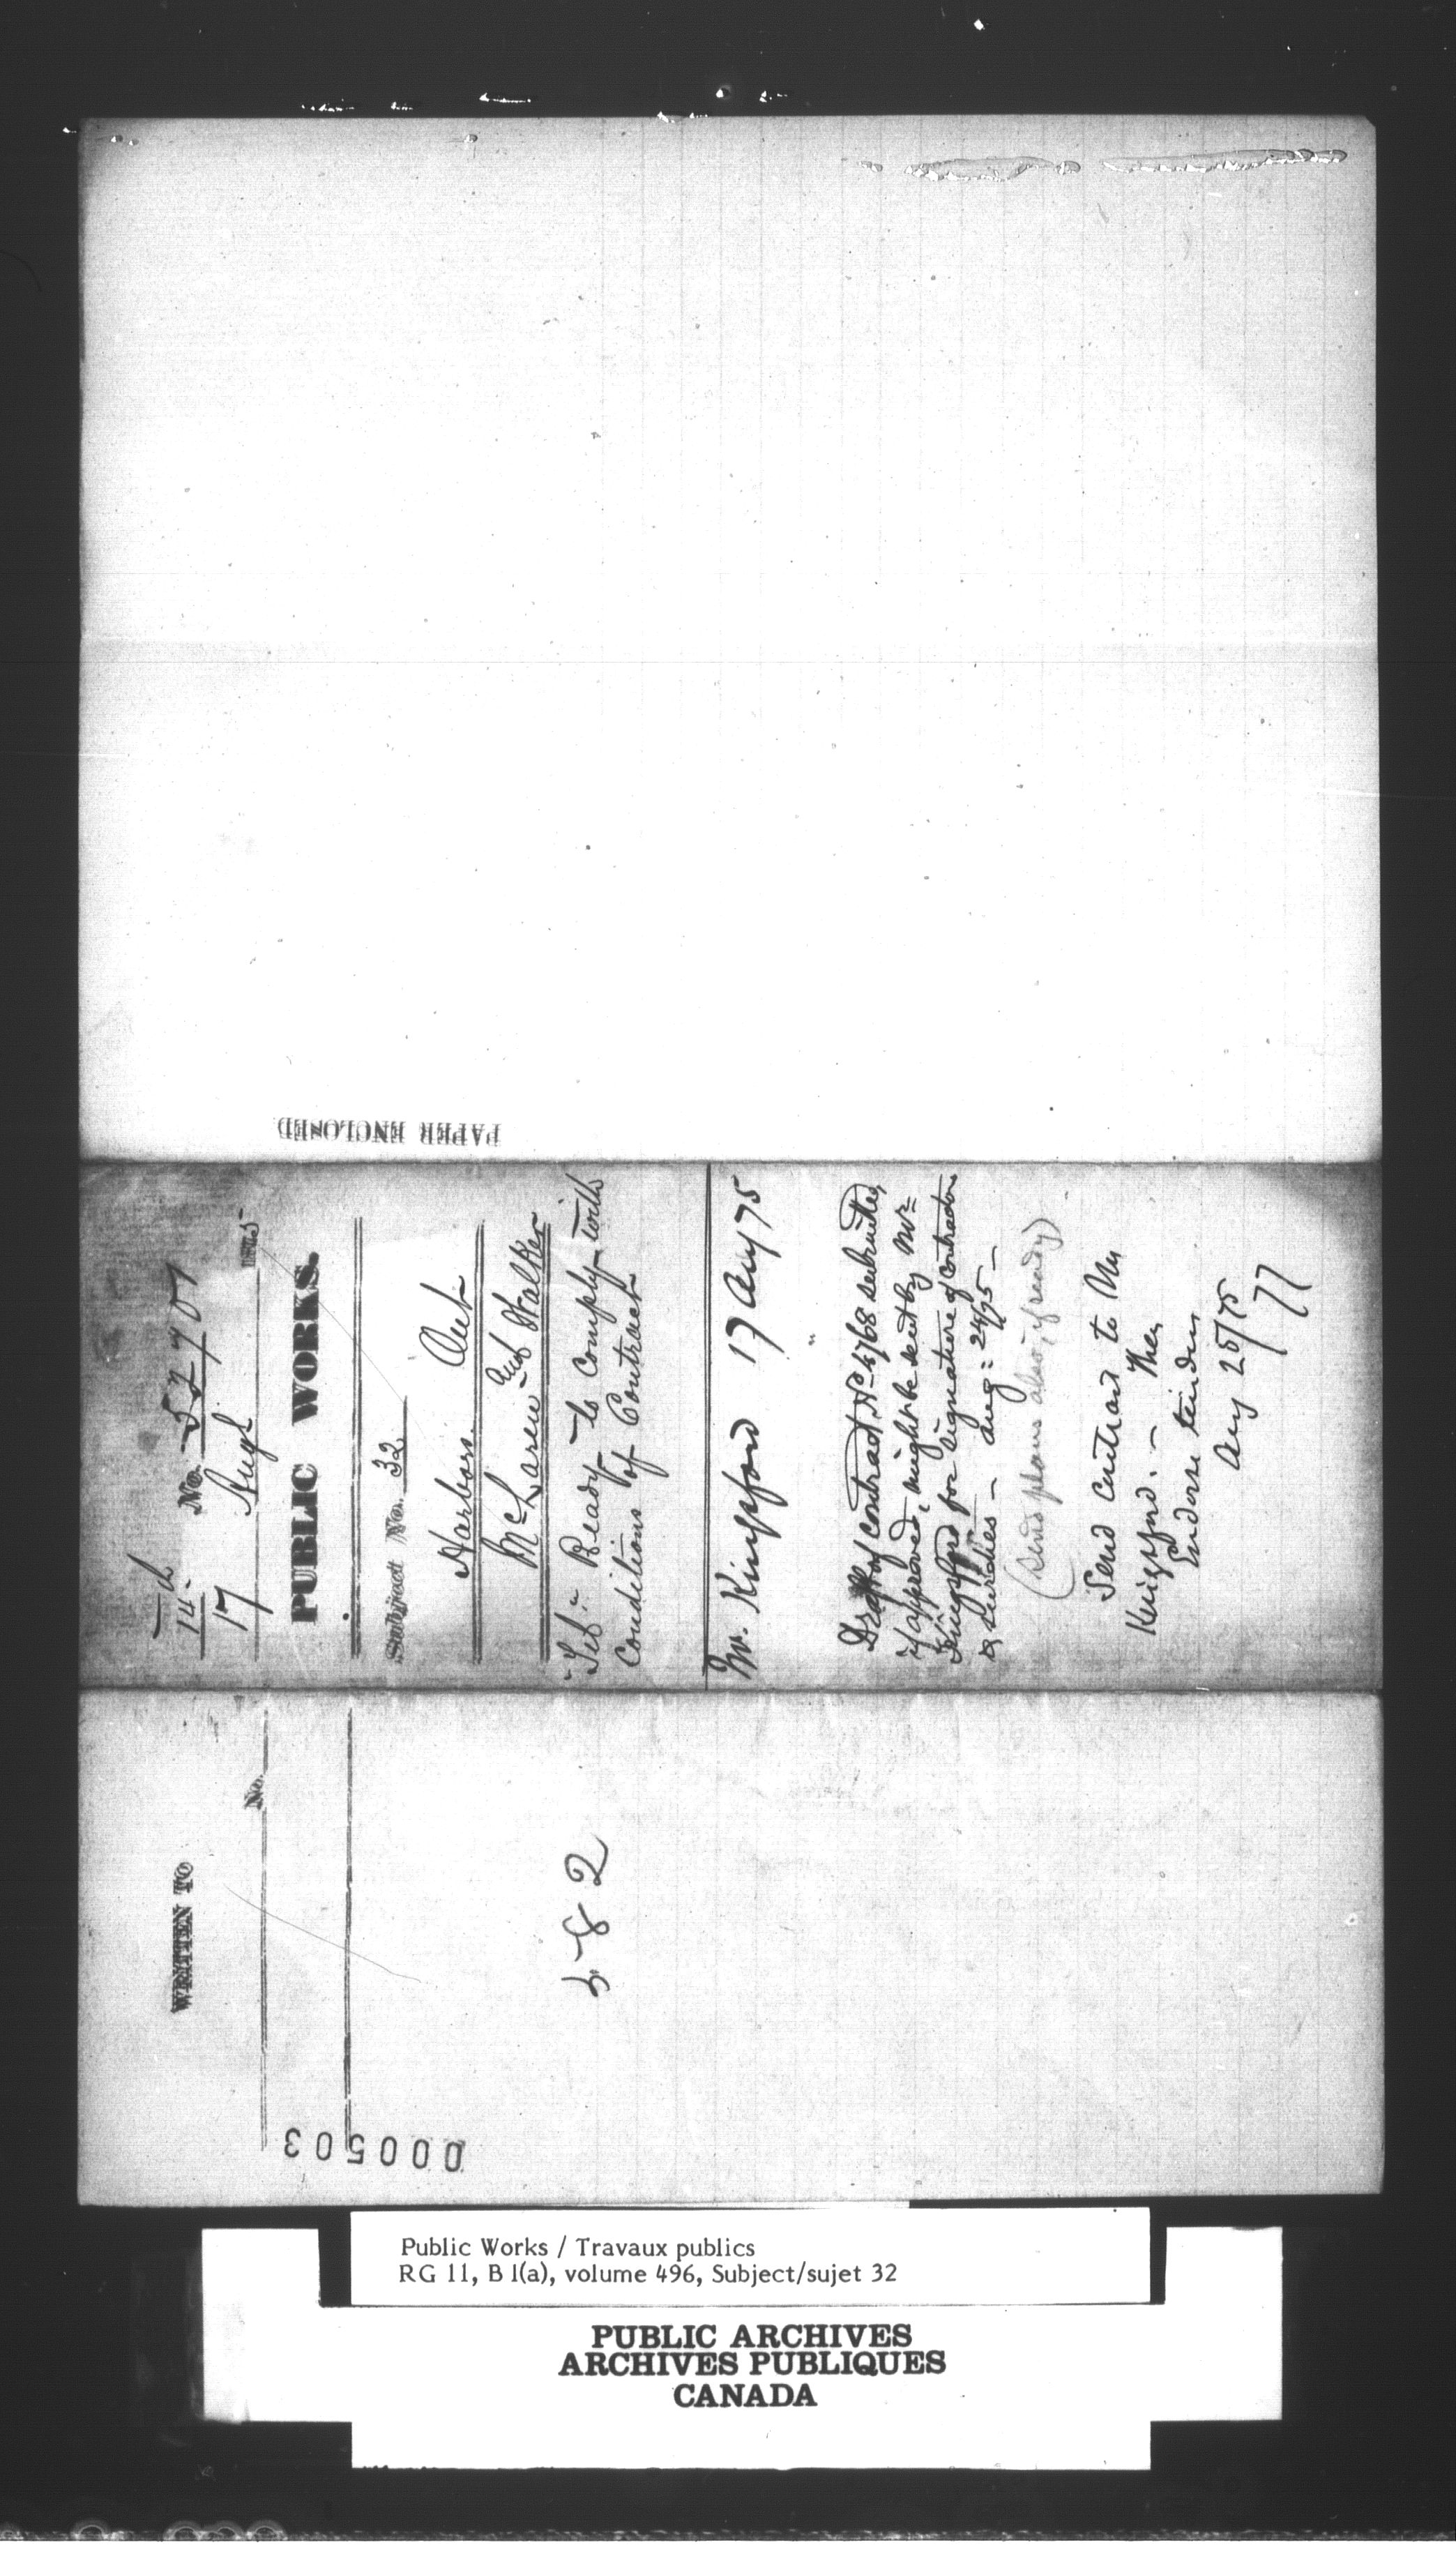 PAPER ENCLOSED
14th
No. 52707
17 Augt 1875
PUBLIC WORKS.
Subject No. 32
Harbors. Ont
McLaren Walker
Ready to Comply with
Conditions of Contract
Mr. Kingsford 17 Aug 75
Draft of contract, No 4768 submitted,
if approved, might be sent by Mr
Kingsford for signature of contractors
& sureties — Aug: 24/75 —
(Send plans also, if ready)
Send Contract to Mr
Kingsford. — Then
Endorse tender
Aug 25/75
77
WRITTEN TO
No.
582
000503
Public Works / Travaux publics
RG 11, B 1(a), volume 496, Subject/sujet 32
PUBLIC ARCHIVES
ARCHIVES PUBLIQUES
CANADA